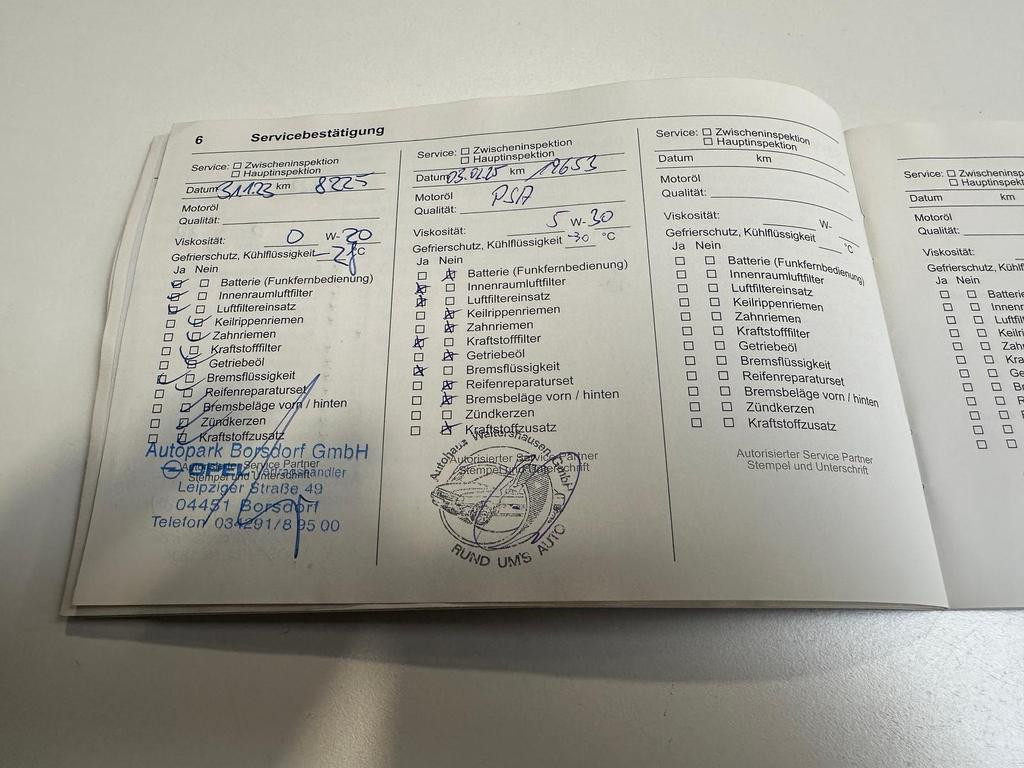 6 Servicebestätigung
Service: ☐ Zwischeninspektion
☐ Hauptinspektion
Datum 3.11.23 km 8225
Motoröl
Qualität:
Viskosität: 0 W-20
Gefrierschutz, Kühlflüssigkeit °C
Ja Nein
Batterie (Funkfernbedienung)
Innenraumluftfilter
Luftfiltereinsatz
Keilrippenriemen
Zahnriemen
Kraftstofffilter
Getriebeöl
Bremsflüssigkeit
Reifenreparaturset
Bremsbeläge vorn / hinten
Zündkerzen
Kraftstoffzusatz
Autorisierter Service Partner
Stempel und Unterschrift
Autopark Borsdorf GmbH
OPEL Vertragshändler
Leipziger Straße 49
04451 Borsdorf
Telefon 034291/8 95 00
Service: ☐ Zwischeninspektion
☐ Hauptinspektion
Datum 03.02.25 km 12653
Motoröl PSA
Qualität:
Viskosität: 5 W-30
Gefrierschutz, Kühlflüssigkeit -30 °C
Ja Nein
Batterie (Funkfernbedienung)
Innenraumluftfilter
Luftfiltereinsatz
Keilrippenriemen
Zahnriemen
Kraftstofffilter
Getriebeöl
Bremsflüssigkeit
Reifenreparaturset
Bremsbeläge vorn / hinten
Zündkerzen
Kraftstoffzusatz
Autorisierter Service Partner
Stempel und Unterschrift
Autohaus Waltershausen GmbH
RUND UM'S AUTO
Service: ☐ Zwischeninspektion
☐ Hauptinspektion
Datum km
Motoröl
Qualität:
Viskosität: W-
Gefrierschutz, Kühlflüssigkeit °C
Ja Nein
Batterie (Funkfernbedienung)
Innenraumluftfilter
Luftfiltereinsatz
Keilrippenriemen
Zahnriemen
Kraftstofffilter
Getriebeöl
Bremsflüssigkeit
Reifenreparaturset
Bremsbeläge vorn / hinten
Zündkerzen
Kraftstoffzusatz
Autorisierter Service Partner
Stempel und Unterschrift
Service: ☐ Zwischeninsp
☐ Hauptinspekt
Datum km
Motoröl
Qualität:
Viskosität:
Gefrierschutz, Kühlflüss
Ja Nein
Batterie
Innenr
Luftfilt
Keilri
Zahn
Kra
Ge
B
R